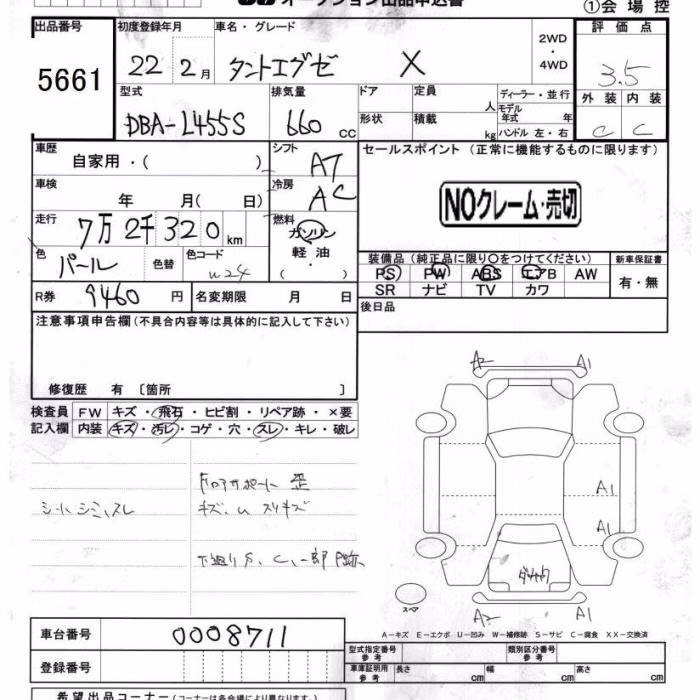 オークション出品申込書
①会場控
出品番号
5661
初度登録年月
22 2月
車名・グレード
タントエグゼ X
2WD
・
4WD
評価点
3.5
外装 内装
C C
型式
DBA-L455S
排気量
660 cc
ドア
定員
人
形状
積載
kg
ディーラー・並行
モデル年式 年
ハンドル 左・右
車歴
自家用・( )
シフト
AT
車検
年 月( 日)
冷房
AC
走行
7万2千320 km
燃料
ガソリン
軽油
・
( )
色
パール
色替
色コード
W24
R券
9460 円
名変期限 月 日
セールスポイント (正常に機能するものに限ります)
NOクレーム・売切
装備品 (純正品に限り○をつけてください)
PS PW ABS エアB AW
SR ナビ TV カワ
新車保証書
有・無
後日品
注意事項申告欄 (不具合内容等は具体的に記入して下さい)
修復歴 有 〔箇所 〕
検査員記入欄
FW キズ・飛石・ヒビ割・リペア跡・×要
内装 キズ・汚レ・コゲ・穴・スレ・キレ・破レ
シートシミ、スレ
F.ロアサポート 歪
キズ、U スリキズ
下廻り S、C、一部P跡、
A2 A1
A1
A1
ダリャク
スペア
A2 A1
A-キズ E-エクボ U-凹み W-補修跡 S-サビ C-腐食 XX-交換済
車台番号
0008711
登録番号
型式指定番号
参考
類別区分番号
参考
車庫証明用
参考
長さ cm
幅 cm
高さ cm
希望出品コーナー (コーナーは各会場により異なります)